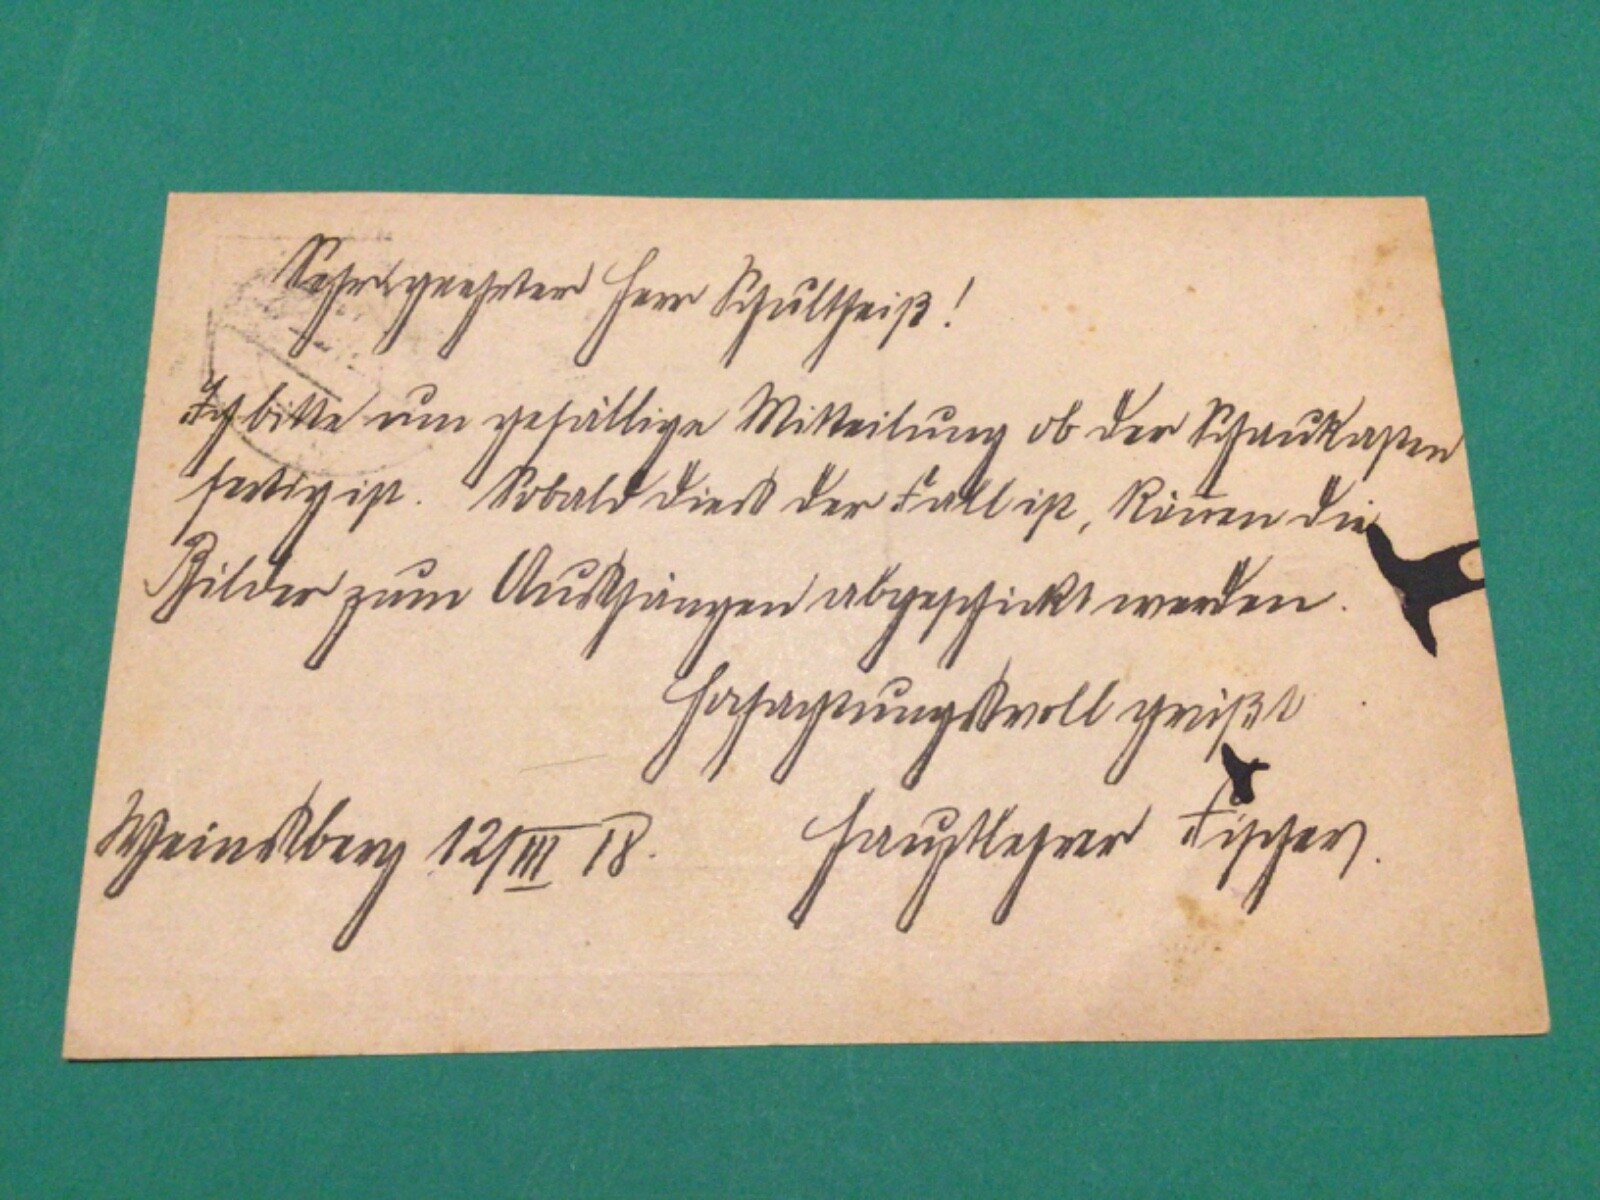 Sehr geehrter Herr Schultheiß!
Ich bitte um gefällige Mitteilung ob der Schaukasten
fertig ist. Sobald dies der Fall ist, können die
Bilder zum Aushängen abgeschickt werden.
Hochachtungsvoll grüßt
Weinsberg 12/III 18. Hauptlehrer Fischer.